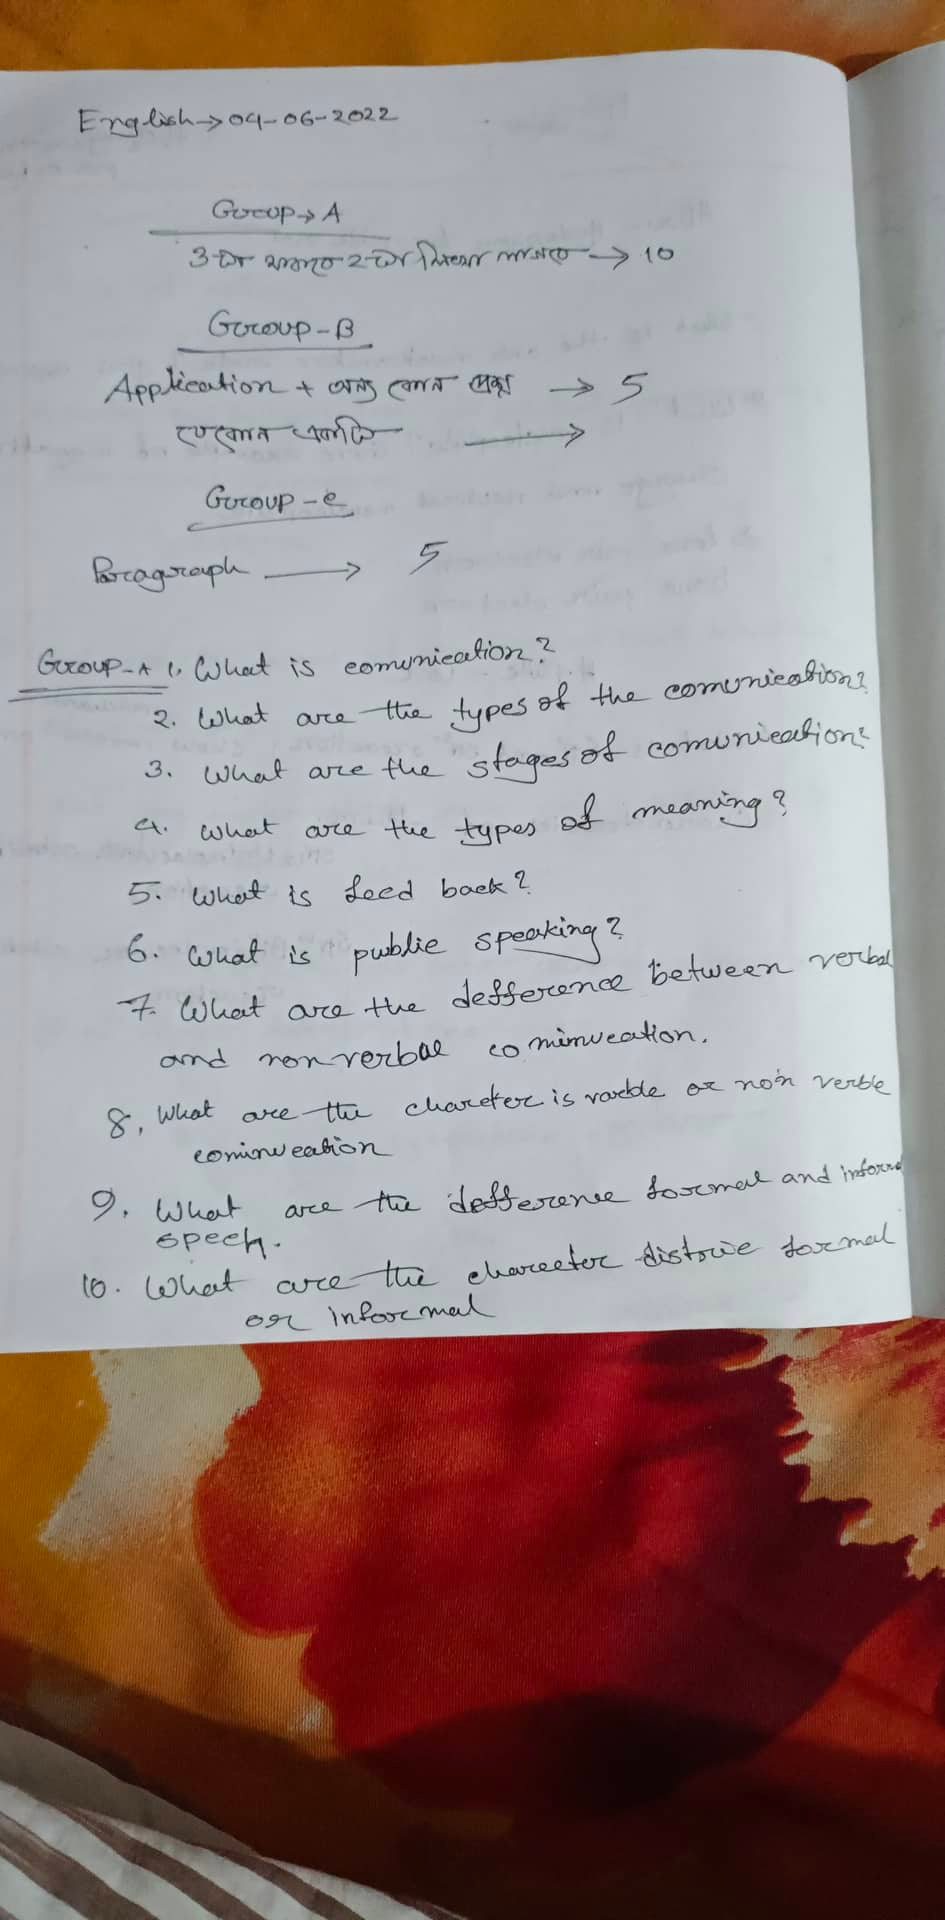 English → 04-06-2022
Group → A
3 টা থাকবে 2 টা লিখতে → 10
Group - B
Application + অন্য কোন প্রশ্ন → 5
যেকোন একটি →
Group - c
Paragraph → 5
Group - A 1. What is comunication?
2. What are the types of the comunication?
3. What are the stages of comunication?
4. What are the types of meaning?
5. What is feed back?
6. What is public speaking?
7. What are the defference between verbal
and nonverbal cominucation.
8. What are the charecter is varble or non verble
cominucation
9. What are the defference formal and informal
speech.
10. What are the chareeter formal
or informal